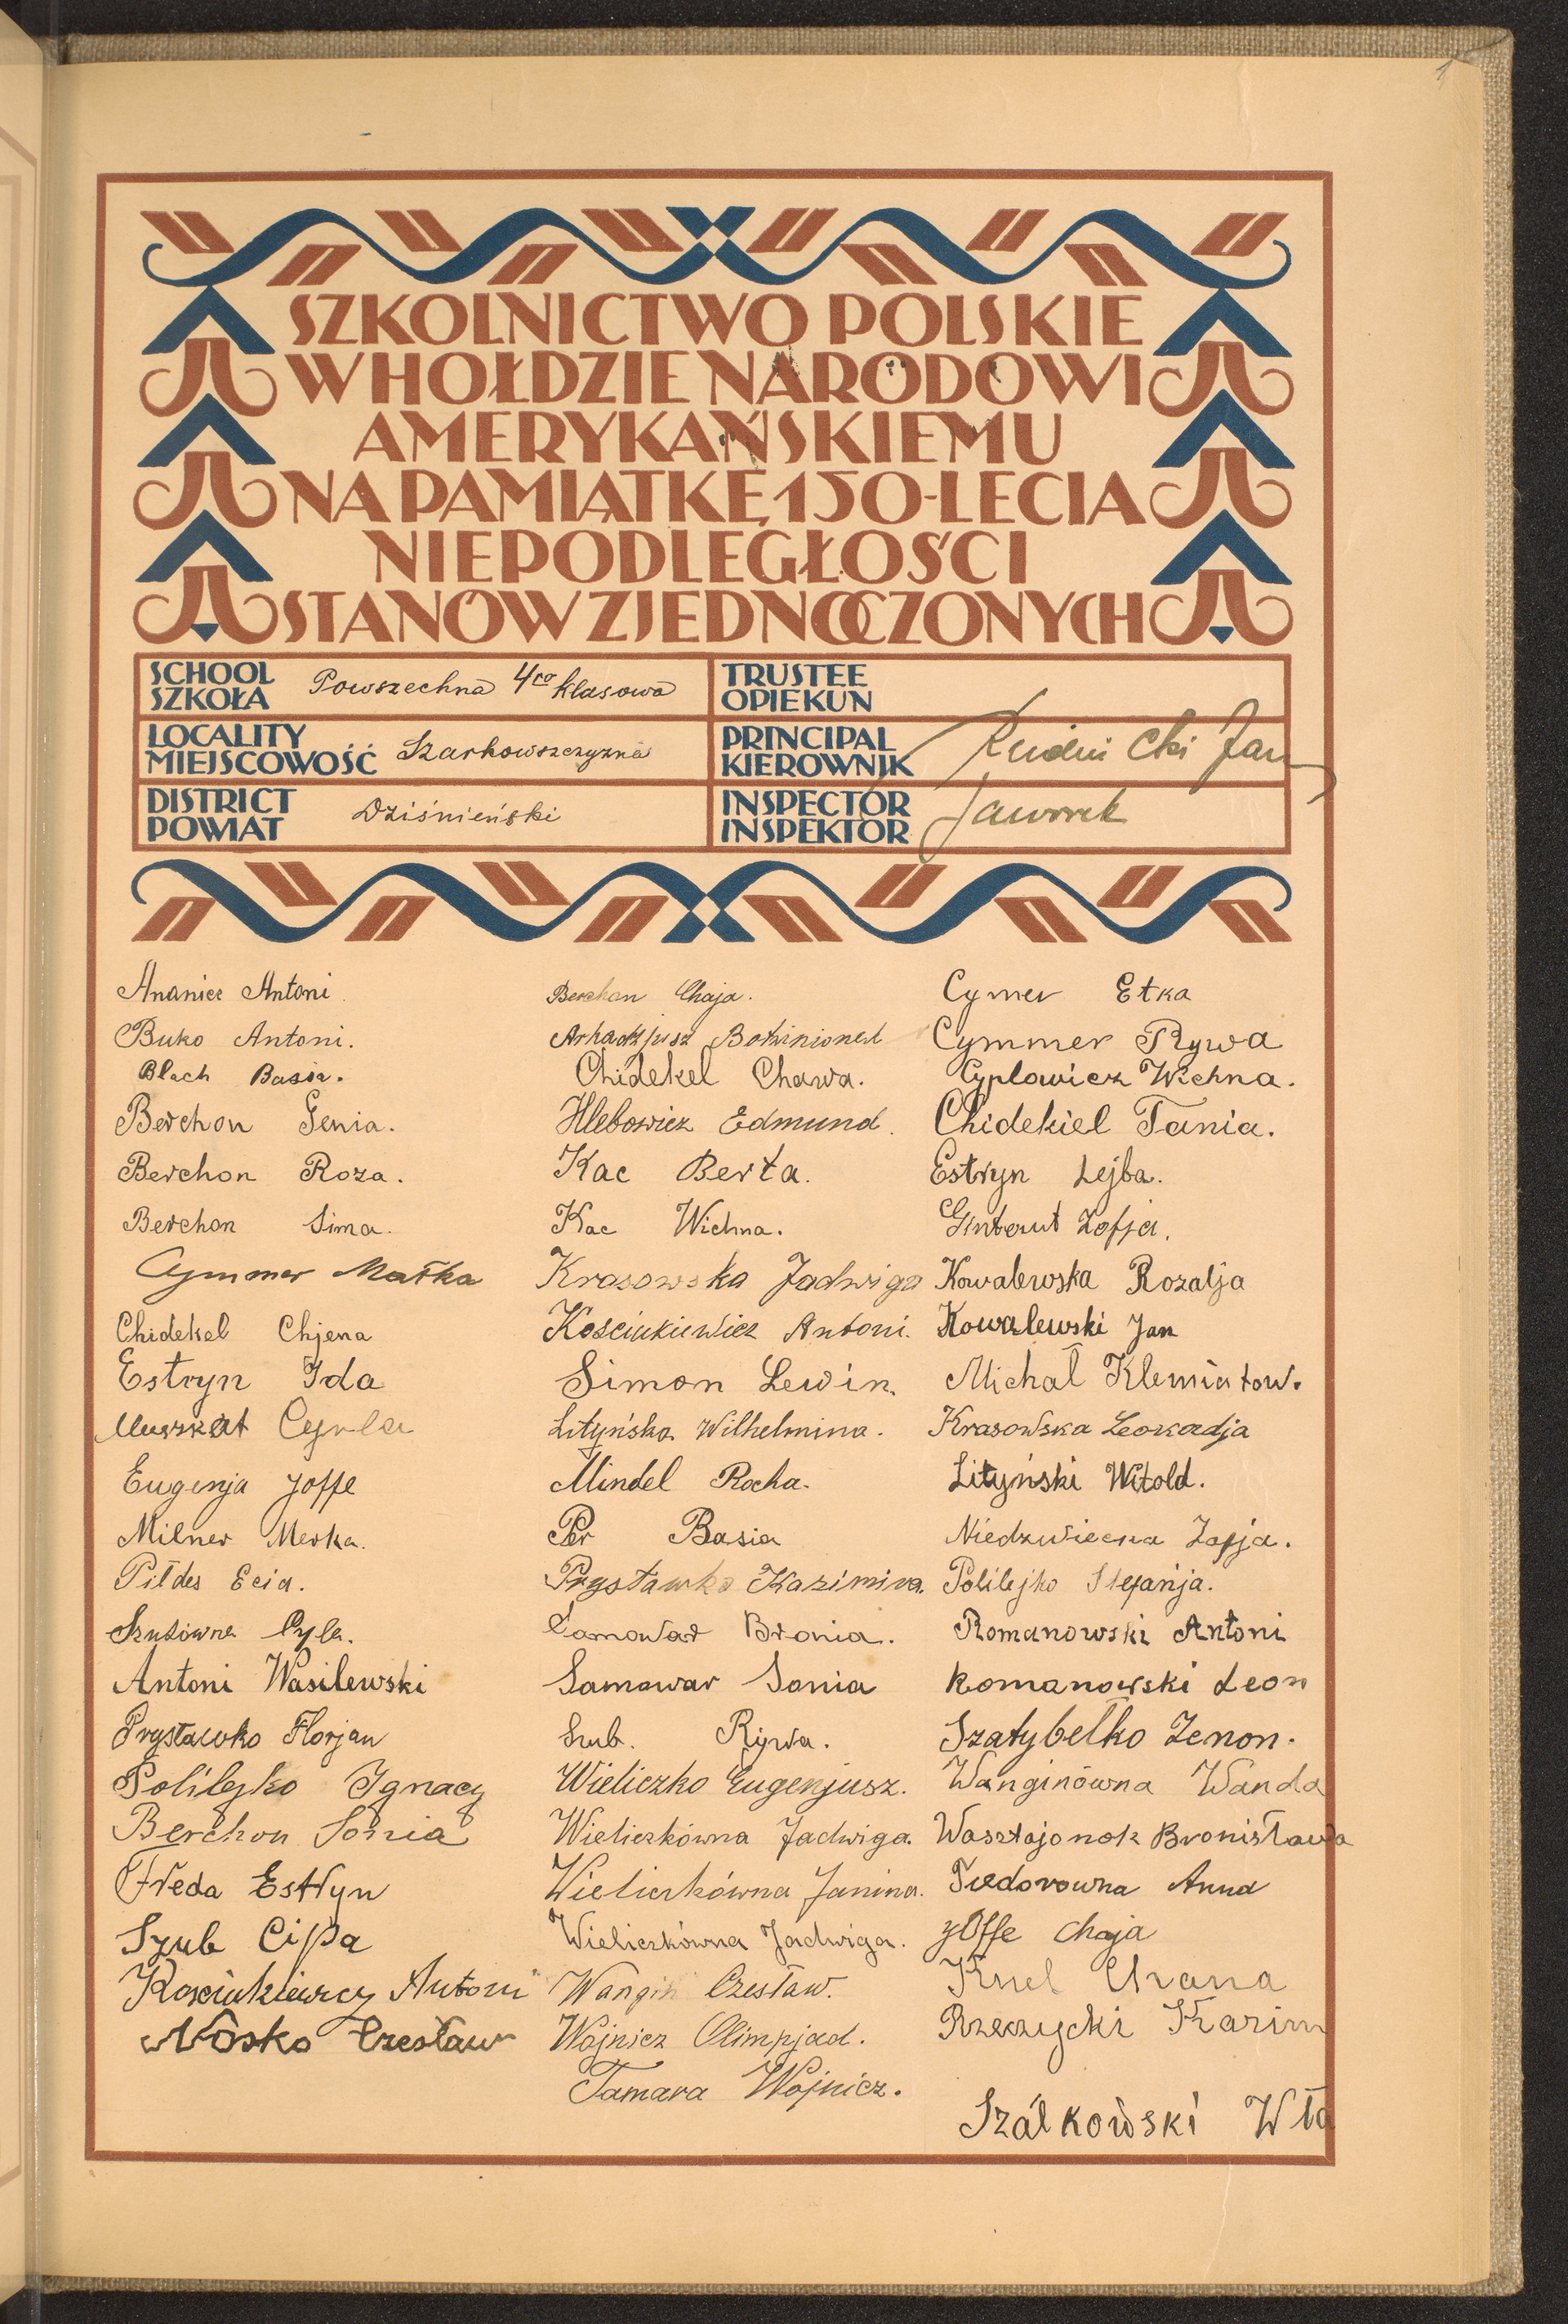 1
SZKOLNICTWO POLSKIE
W HOŁDZIE NARODOWI
AMERYKAŃSKIEMU
NA PAMIĄTKĘ 150-LECIA
NIEPODLEGŁOŚCI
STANÓW ZJEDNOCZONYCH
SCHOOL
SZKOŁA
Powszechna 4ro klasowa
TRUSTEE
OPIEKUN
LOCALITY
MIEJSCOWOŚĆ
Szarkowszczyzna
PRINCIPAL
KIEROWNIK
Rudnicki Jan
DISTRICT
POWIAT
Dziśnieński
INSPECTOR
INSPEKTOR
Jaworek
Ananicz Antoni
Buko Antoni.
Blach Basia.
Berchon Genia.
Berchon Roza.
Berchon Sima.
Cymmer Matka
Chidekel Chjena
Estryn Ida
Muszkat Cyrla
Eugenja Joffe
Milner Merka.
Pildes Ecia.
Szubówna Cyla.
Antoni Wasilewski
Prystawko Florjan
Polilejko Ignacy
Berchon Sonia
Freda Estryn
Szub Cipa
Kościukiewicz Antoni
Nosko Czesław
Berchon Chaja.
Arkadjusz
Chidekel Chawa.
Hlebowicz Edmund.
Kac Berta.
Kac Wichna.
Krasowska Jadwiga
Kościukiewicz Antoni.
Simon Lewin.
Lityńska Wilhelmina.
Mindel Rocha.
Per Basia
Prystawko Kazimira.
Samowar Bronia.
Samowar Sonia
Szub. Rywa.
Wieliczko Eugenjusz.
Wieliczkówna Jadwiga.
Wieliczkówna Janina.
Wieliczkówna Jadwiga.
Wangin Czesław.
Wojnicz Olimpjad.
Tamara Wojnicz.
Cymer Etka
Cymmer Rywa
Cyplowicz Wichna.
Chidekiel Tania.
Estryn Lejba.
Ginterut Zofja.
Kowalewska Rozalja
Kowalewski Jan
Michał Klemiatow.
Krasowska Leokadja
Lityński Witold.
Niedzwiecka Zofja.
Polilejko Stefanja.
Romanowski Antoni
Romanowski Leon
Szatybełko Zenon.
Wanginówna Wanda
Wasztajonok Bronisława
Fiedorowna Anna
Joffe Chaja
Knel Chana
Rzeczycki Kazim
Szałkowski Wła